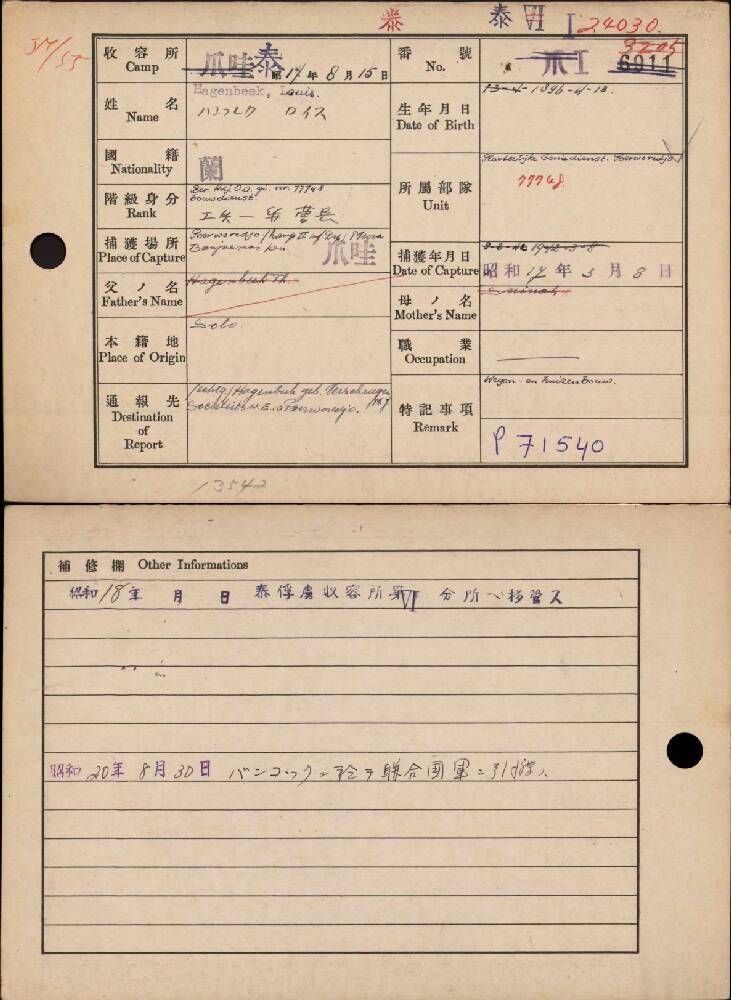 泰 泰 VI I 24030.
57/55
收容所 Camp 爪哇 泰 昭 17年8月15日
番號 No. 爪 I 3205 6911
姓名 Name Hagenbeek, Louis.
ハンフェク ロイス
生年月日 Date of Birth 13-4- 1896-4-13
國籍 Nationality 蘭
階級身分 Rank Ser. Maj. O.D. gi. nr. 77748
bouwdienst.
工兵一等曹長
所屬部隊 Unit Plaatselijke Geniedienst. Poerworedjo
77748
捕獲場所 Place of Capture Poerworedjo /
爪哇
捕獲年月日 Date of Capture 8-3-42 1942-3-8
昭和17年3月8日
父ノ名 Father's Name Hagenbeek Th.
母ノ名 Mother's Name
本籍地 Place of Origin Solo.
職業 Occupation
通報先 Destination of Report Hagenbeek geb. Verschragen
Poerworedjo.
特記事項 Remark Wegen- en huizenbouw.
P 71540
13542
補修欄 Other Informations
昭和18年 月 日 泰俘虜收容所第VI分所ヘ移管ス
昭和20年8月30日 バンコックニ於テ聯合國軍ニ引渡ス